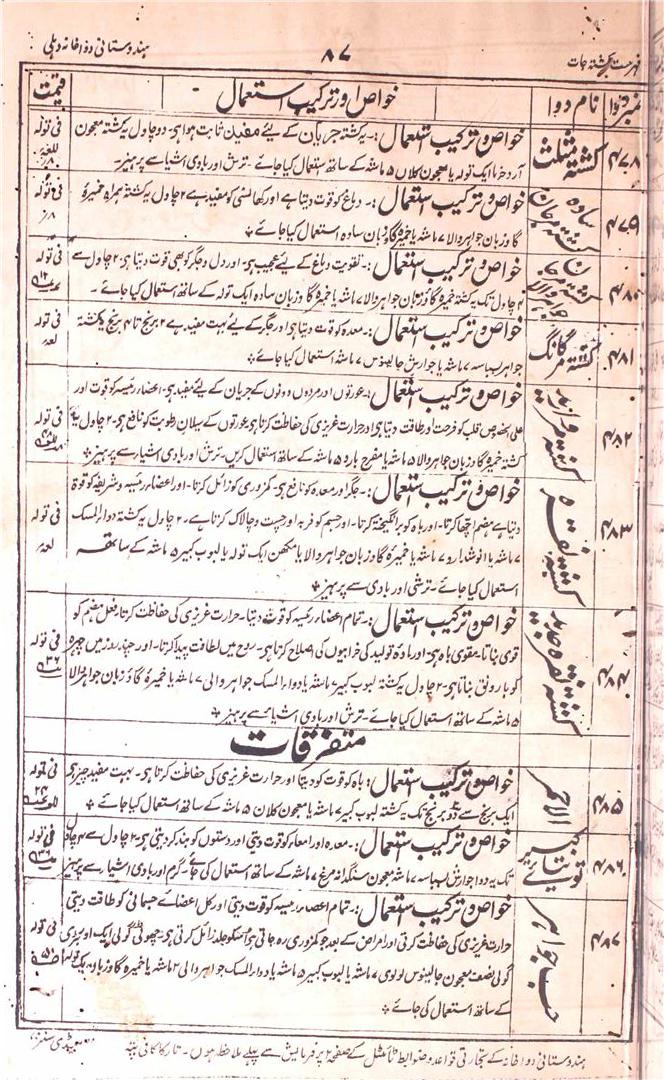 فہرست کشتہ جات ۸۷ ہندوستانی دواخانہ دہلی
نمبر دوا نام دوا خواص اور ترکیب استعمال قیمت
۴۷۸ کشتہ مثلث
خواص و ترکیب استعمال:۔ یہ کشتہ جریان کے لیئے مفید ثابت ہوا ہے۔ دو چاول یہ کشتہ معجون
آرد خرما ایک تولہ یا معجون کلاں ۵ ماشہ کے ساتھ استعمال کیا جائے۔ ترش اور بادی اشیا سے پرہیز۔
فی تولہ
۴۷۹ کشتہ مرجان سادہ
خواص و ترکیب استعمال:۔ دماغ کو قوت دیتا ہے اور کھانسی کو مفید ہے ۲ چاول یہ کشتہ ہمراہ خمیرۂ
گاوزبان جواہر والا ۷ ماشہ یا خمیرہ گاوزبان سادہ استعمال کیا جائے
فی تولہ
۴۸۰ کشتہ مرجان جواہر والا
خواص و ترکیب استعمال:۔ تقویت دماغ کے لیئے عجیب ہے۔ اور دل و جگر کو بھی قوت دیتا ہے۔ ۲ چاول سے
۴ چاول تک یہ کشتہ خمیرہ گاوزبان جواہر والا ۷ ماشہ یا خمیرہ گاوزبان سادہ ایک تولہ کے ساتھ استعمال کیا جائے۔
فی تولہ
۴۸۱ کشتہ مرگانگ
خواص و ترکیب استعمال:۔ معدہ کو قوت دیتا ہے اور جگر کے لیئے بہت مفید ہے ۲ برنج تا ۴ برنج یہ کشتہ
جوارش بسباسہ ۷ ماشہ یا جوارش جالینوس ۷ ماشہ استعمال کیا جائے
فی تولہ
۴۸۲ کشتہ مروارید
خواص و ترکیب استعمال:۔ عورتوں اور مردوں دونوں کے جریان کے لئے مفید ہے۔ اعضاء رئیسہ کو قوت اور
علی الخصوص قلب کو فرحت اور طاقت دیتا ہے اور حرارت غریزی کی حفاظت کرتا ہے عورتوں کے سیلان رطوبت کو نافع ہے۔ ۲ چاول یہ
کشتہ خمیرہ گاوزبان جواہر والا ۵ ماشہ یا مفرح بارد ۵ ماشہ کے ساتھ استعمال کریں۔ ترش اور بادی اشیاء سے پرہیز
فی تولہ
۴۸۳ کشتہ نقرہ
خواص و ترکیب استعمال:۔ جگر اور معدہ کو نافع ہے۔ کمزوری کو زائل کرتا۔ اور اعضاء رئیسہ و شریفہ کو قوۃ
دیتا ہے ہضم اچھا کرتا۔ اور باہ کو برانگیختہ کرتا۔ اور جسم کو فربہ اور چست و چالاک کرتا ہے۔ ۲ چاول یہ کشتہ دواء المسک
۷ ماشہ یا انوشدارو ۷ ماشہ یا خمیرہ گاوزبان جواہر والا یا مکھن ایک تولہ یا لبوب کبیر ۵ ماشہ کے ساتھ
استعمال کیا جائے۔ ترشی اور بادی سے پرہیز
فی تولہ
۴۸۴ کشتہ نقرہ جدید
خواص و ترکیب استعمال:۔ تمام اعضاء رئیسہ کو قوت دیتا۔ حرارت غریزی کی حفاظت کرتا فعل ہضم کو
قوی بناتا۔ مقوی باہ ہے۔ اور مادہ تولید کی خرابیوں کی اصلاح کرتا ہے۔ روح میں لطافت پیدا کرتا۔ اور چند روز میں چہرہ
کو بارونق بناتا ہے۔ ۲ چاول یہ کشتہ لبوب کبیر ۵ ماشہ یا دواء المسک جواہر والی ۷ ماشہ یا خمیرہ گاؤزبان جواہر والا
۵ ماشہ کے ساتھ استعمال کیا جائے۔ ترش اور بادی اشیاء سے پرہیز
فی تولہ
متفرقات
۴۸۵ الاحمر
خواص و ترکیب استعمال:۔ باہ کو قوت دیتا اور حرارت غریزی کی حفاظت کرتا ہے۔ بہت مفید چیز ہے
ایک برنج سے دو برنج تک یہ کشتہ لبوب کبیر ۷ ماشہ یا معجون کلاں ۵ ماشہ کے ساتھ استعمال کیا جائے
فی تولہ
۴۸۶
خواص و ترکیب استعمال:۔ معدہ اور امعاء کو قوت دیتی اور دستوں کو بند کر دیتی ہے۔ ۲ چاول سے ۴ چاول
تک یہ دوا جوارش بسباسہ ۷ ماشہ معجون سنگدانہ مرغ ۷ ماشہ کے ساتھ استعمال کی جائے گرم اور بادی اشیاء سے پرہیز
فی تولہ
۴۸۷ حب جواہر
خواص و ترکیب استعمال:۔ تمام اعضاء رئیسہ کو قوت دیتی اور کل اعضائے جسمانی کو طاقت دیتی
حرارت غریزی کی حفاظت کرتی اور امراض کے بعد جو کمزوری رہ جاتی ہے اسکو جلد زائل کرتی ہے۔ چھوٹی گولی ایک اور بڑی
گولی نصف معجون جالینوس لولوی ۷ ماشہ یا لبوب کبیر ۵ ماشہ یا دواء المسک جواہر والی ۷ ماشہ یا خمیرہ گاوزبان
کے ساتھ استعمال کی جائے
فی تولہ
ہندوستانی دواخانہ کے تجارتی قواعد و ضوابط ٹائٹل کے صفحہ ۲ پر فرمایش سے پہلے ملاحظہ ہوں۔ تار کا کافی پتہ